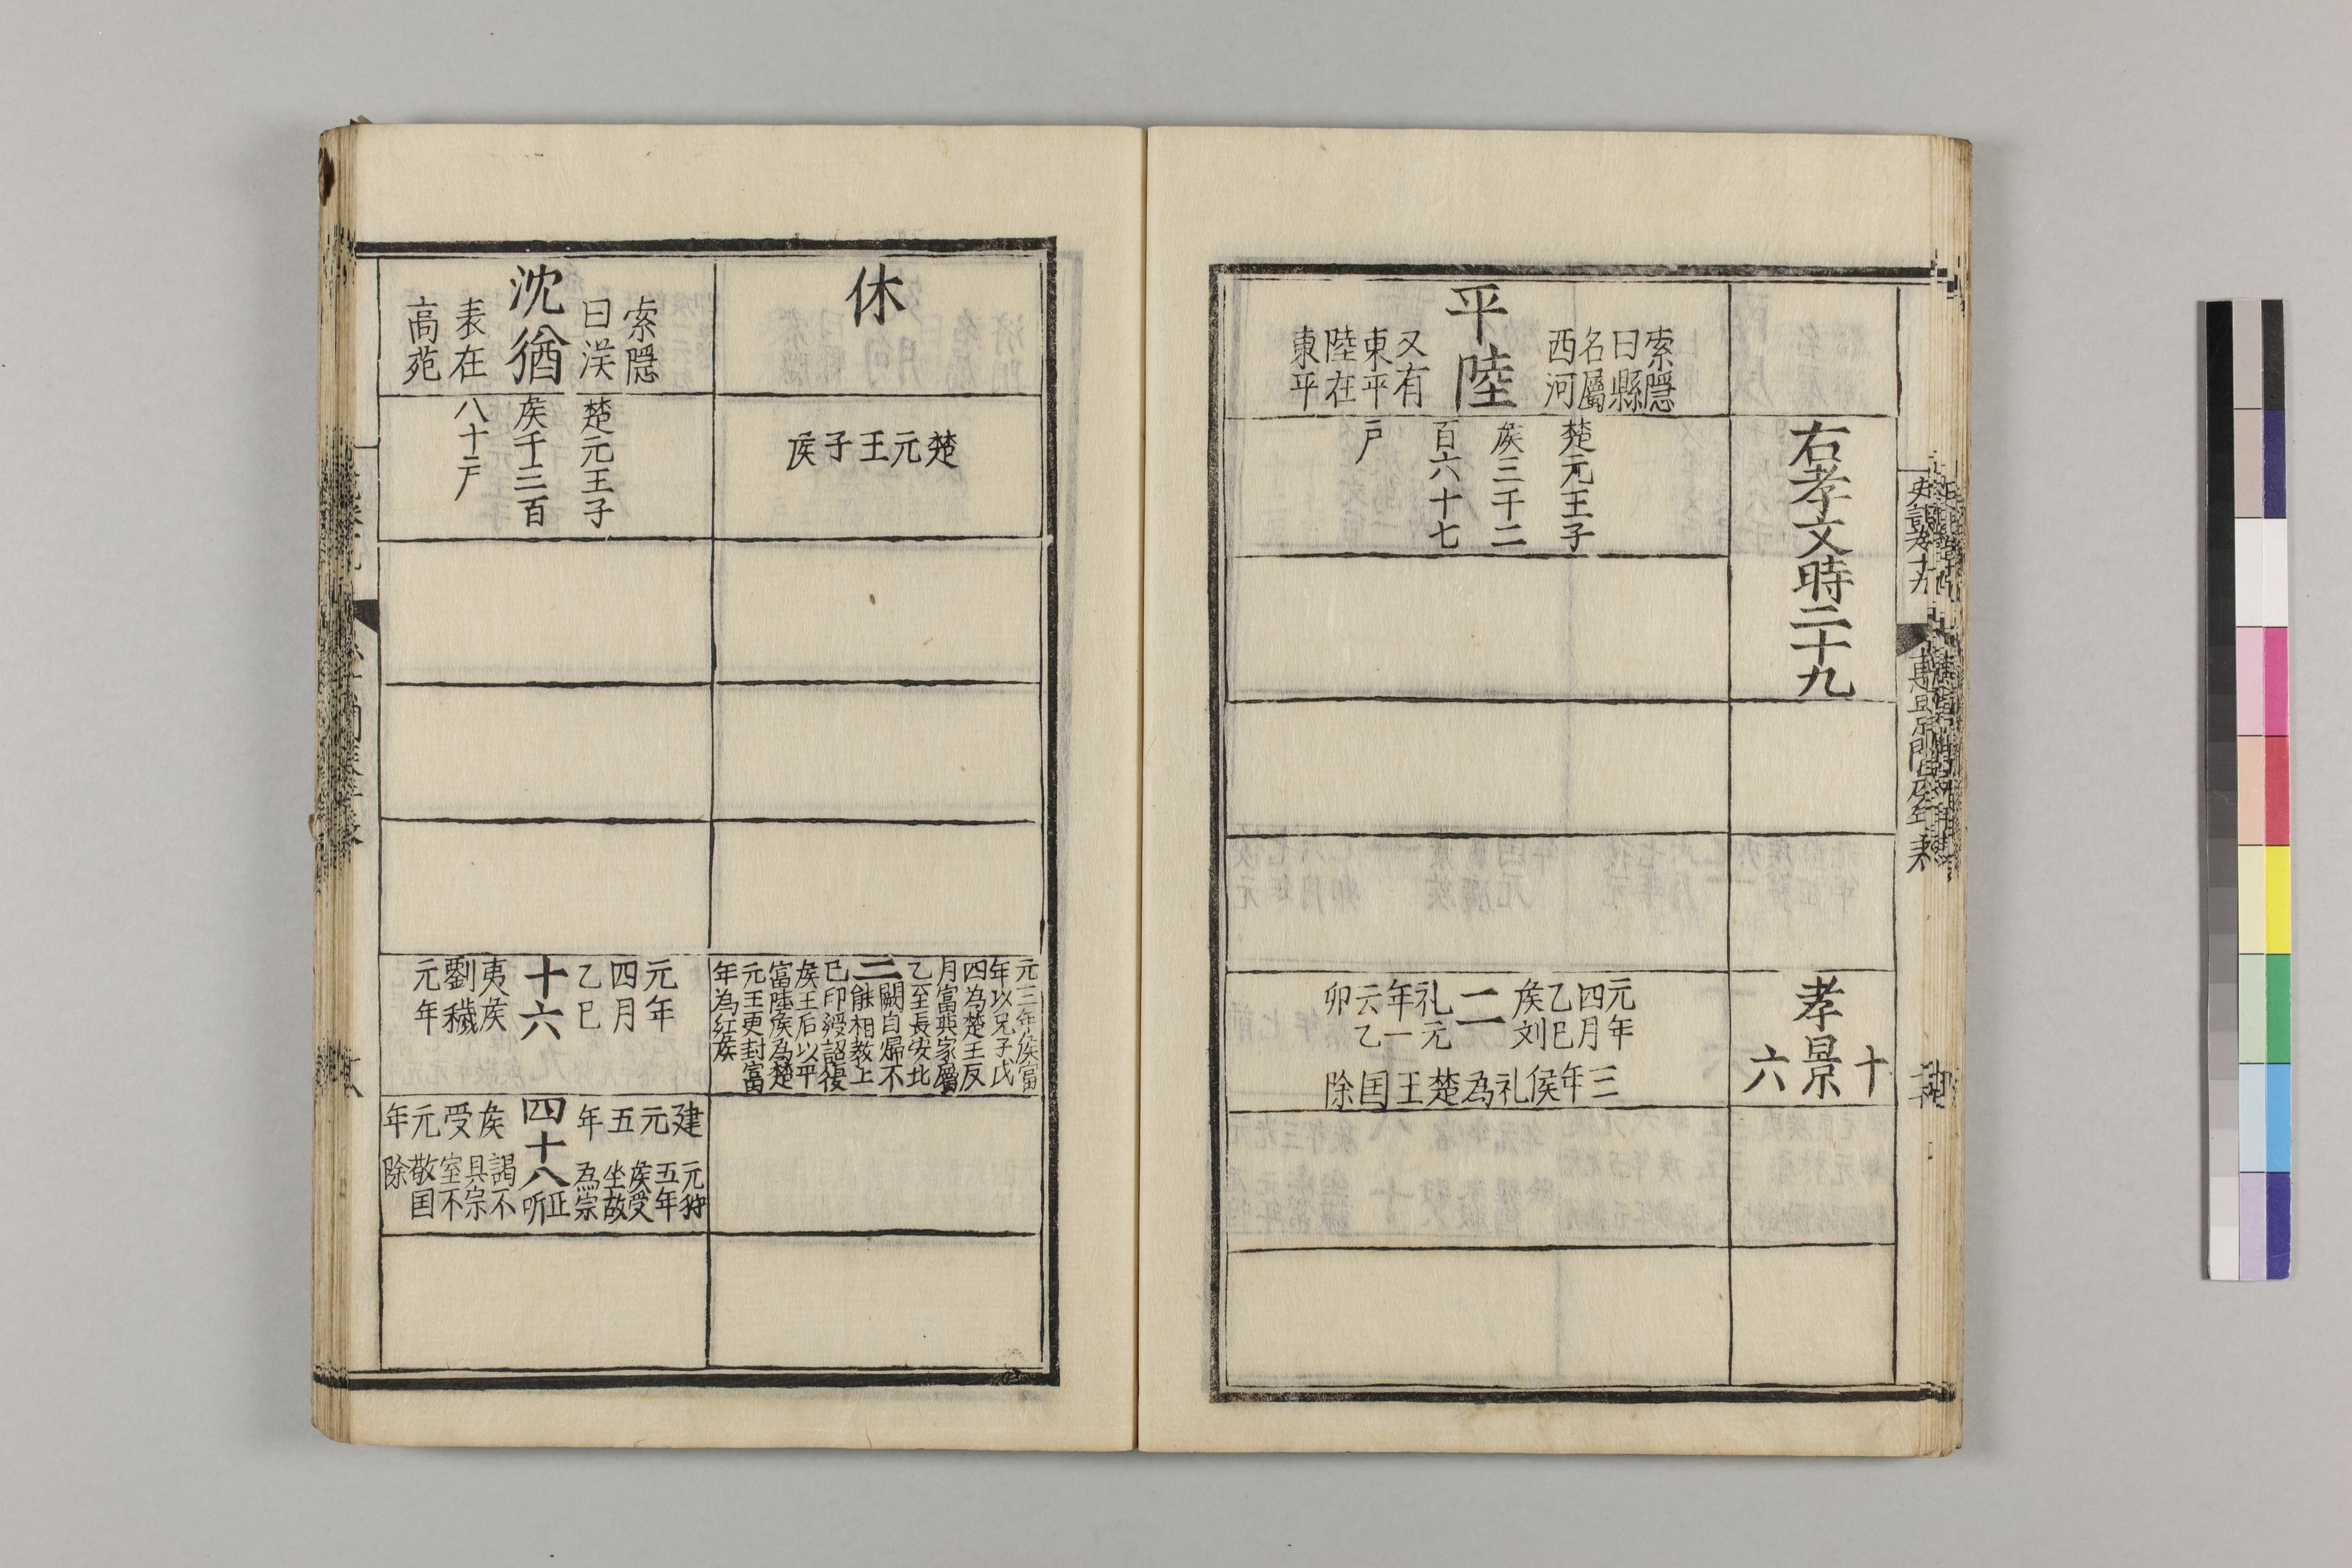 史記卷十九
惠景間侯年表
右孝文時二十九
孝景
十
六
平陸
索隱
曰縣
名屬
西河
又有
東平
陸在
東平
楚元王子
矦三千二
百六十七
戶
元年
四月
乙巳
矦刘
二
礼元
年一
云乙
卯
三年侯礼為楚王国除
休
楚元王子矦
元三年矦富
年以兄子戊
四為楚王反
月富與家屬
乙至長安北
闕自歸不
二
能相教上
巳印綬詔復
矦王后以平
富陸矦為楚
元王更封富
年為紅矦
沈猶
索隱
曰漢
表在
高苑
楚元王子
矦千三百
八十戶
元年
四月
乙巳
十六
夷矦
劉穢
元年
建元五年
四十八
矦受元年
元狩
五年
矦受
坐故
為宗
正听
謁不
具宗
室不
敬国
除